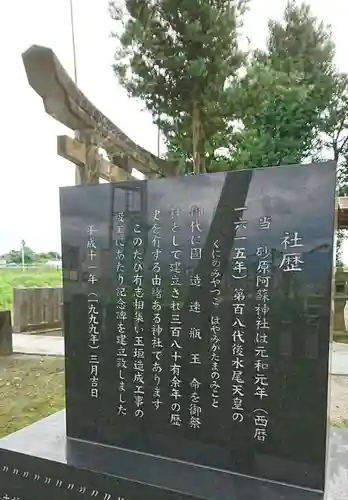 社歴
当 砂原阿蘇神社は元和元年（西暦
一六一五年）第百八代後水尾天皇の
くにのみやつこ はやみかたまのみこと
御代に国造速瓶玉命を御祭
神として建立され三百八十有余年の歴
史を有する由緒ある神社であります
このたび有志相集い玉垣造成工事の
竣工にあたり記念碑を建立致しました
平成十一年（一九九九年）三月吉日